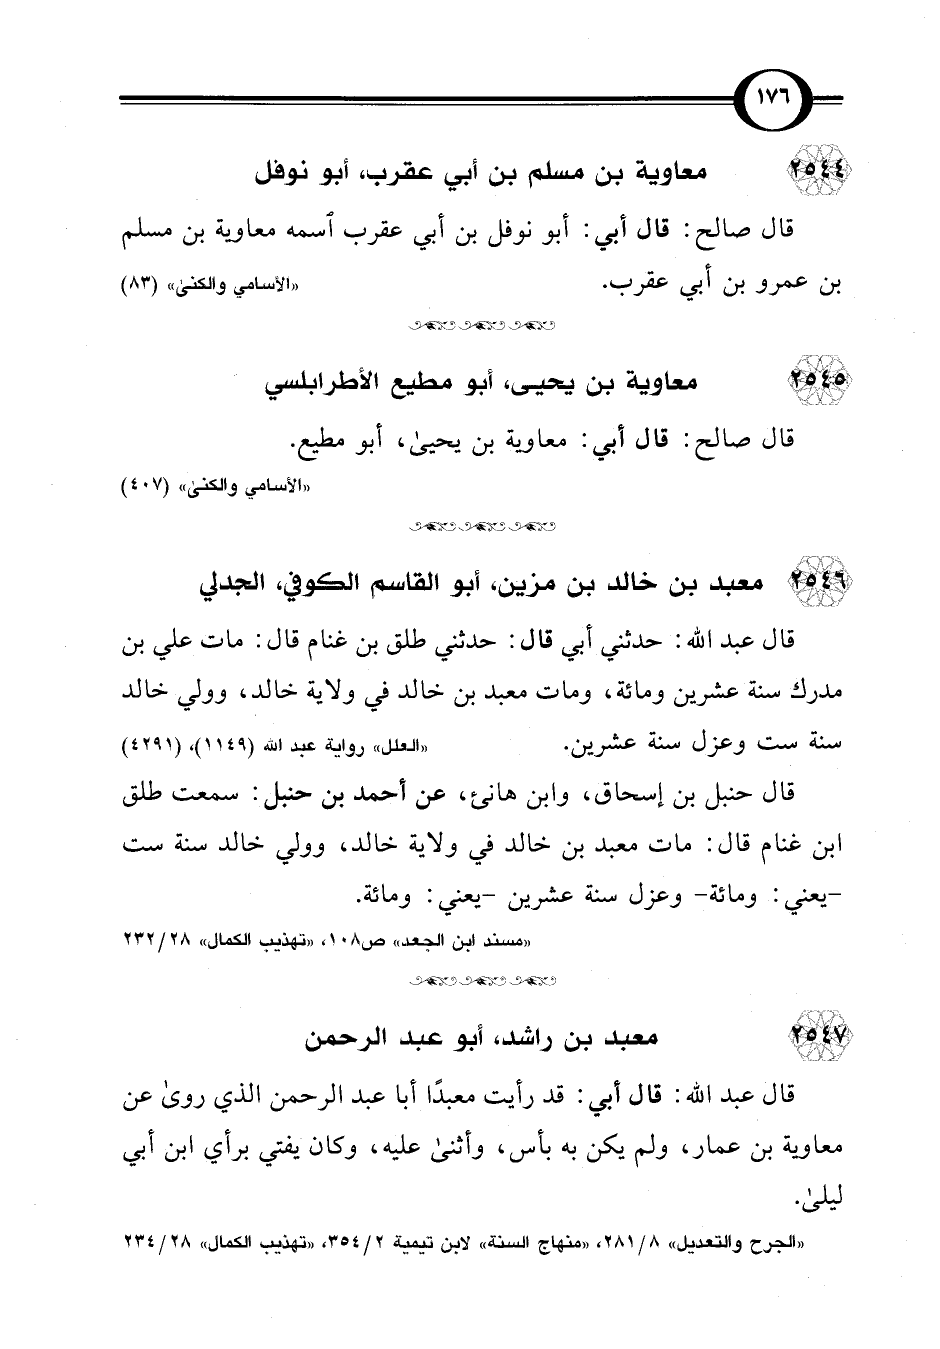 ١٧٦
٢٥٤٤ معاوية بن مسلم بن أبي عقرب، أبو نوفل
قال صالح: قال أبي: أبو نوفل بن أبي عقرب ٱسمه معاوية بن مسلم
بن عمرو بن أبي عقرب. «الأسامي والكنىٰ» (٨٣)
٢٥٤٥ معاوية بن يحيى، أبو مطيع الأطرابلسي
قال صالح: قال أبي: معاوية بن يحيىٰ، أبو مطيع.
«الأسامي والكنىٰ» (٤٠٧)
٢٥٤٦ معبد بن خالد بن مزين، أبو القاسم الكوفي، الجدلي
قال عبد الله: حدثني أبي قال: حدثني طلق بن غنام قال: مات علي بن
مدرك سنة عشرين ومائة، ومات معبد بن خالد في ولاية خالد، وولي خالد
سنة ست وعزل سنة عشرين. «العلل» رواية عبد الله (١١٤٩)، (٤٢٩١)
قال حنبل بن إسحاق، وابن هانئ، عن أحمد بن حنبل: سمعت طلق
ابن غنام قال: مات معبد بن خالد في ولاية خالد، وولي خالد سنة ست
-يعني: ومائة- وعزل سنة عشرين -يعني: ومائة.
«مسند ابن الجعد» ص١٠٨، «تهذيب الكمال» ٢٣٢/٢٨
٢٥٤٧ معبد بن راشد، أبو عبد الرحمن
قال عبد الله: قال أبي: قد رأيت معبدًا أبا عبد الرحمن الذي روىٰ عن
معاوية بن عمار، ولم يكن به بأس، وأثنىٰ عليه، وكان يفتي برأي ابن أبي
ليلىٰ.
«الجرح والتعديل» ٢٨١/٨، «منهاج السنة» لابن تيمية ٣٥٤/٢، «تهذيب الكمال» ٢٣٤/٢٨